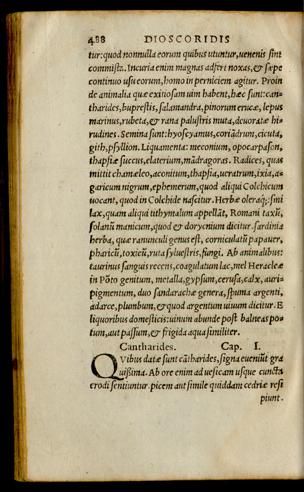 488 DIOSCORIDIS
tur: quod nonnulla eorum quibus utuntur, uenenis sint
commista. Incuria enim magnas adstri noxas, & sæpe
continuo usu eorum, homo in perniciem agitur. Proin
de animalia quæ exitiosam uim habent, hæc sunt: can-
tharides, buprestis, salamandra, pinorum erucæ, lepus
marinus, rubeta, & rana palustris muta, deuoratæ hi-
rudines. Semina sunt: hyoscyamus, coriãdrum, cicuta,
gith, psyllion. Liquamenta: meconium, opocarpason,
thapsiæ succus, elaterium, mãdragoras. Radices, quas
mittit chamæleo, aconitum, thapsia, ueratrum, ixia, a-
garicum nigrum, ephemerum, quod aliqui Colchicum
uocant, quod in Colchide nascitur. Herbæ oleraq́;: smi
lax, quam aliqui tithymalum appellãt, Romani taxũ,
solanũ manicum, quod & dorycnium dicitur. sardinia
herba, quæ ranunculi genus est, corniculatũ papauer,
pharicũ, toxicũ, ruta syluestris, fungi. Ab animalibus:
taurinus sanguis recens, coagulatum lac, mel Heracleæ
in Põto genitum, metalla, gypsum, cerusa, calx, auri-
pigmentum, duo sandarachæ genera, spuma argenti,
adarce, plumbum, & quod argentum uiuum dicitur. E
liquoribus domesticis: uinum abunde post balneas po-
tum, aut passum, & frigida aqua similiter.
Cantharides. Cap. I.
QVibus datæ sunt cãtharides, signa eueniũt gra
uissima. Ab ore enim ad uesicam usque cuncta
erodi sentiuntur. picem aut simile quiddam cedriæ resi
piunt.